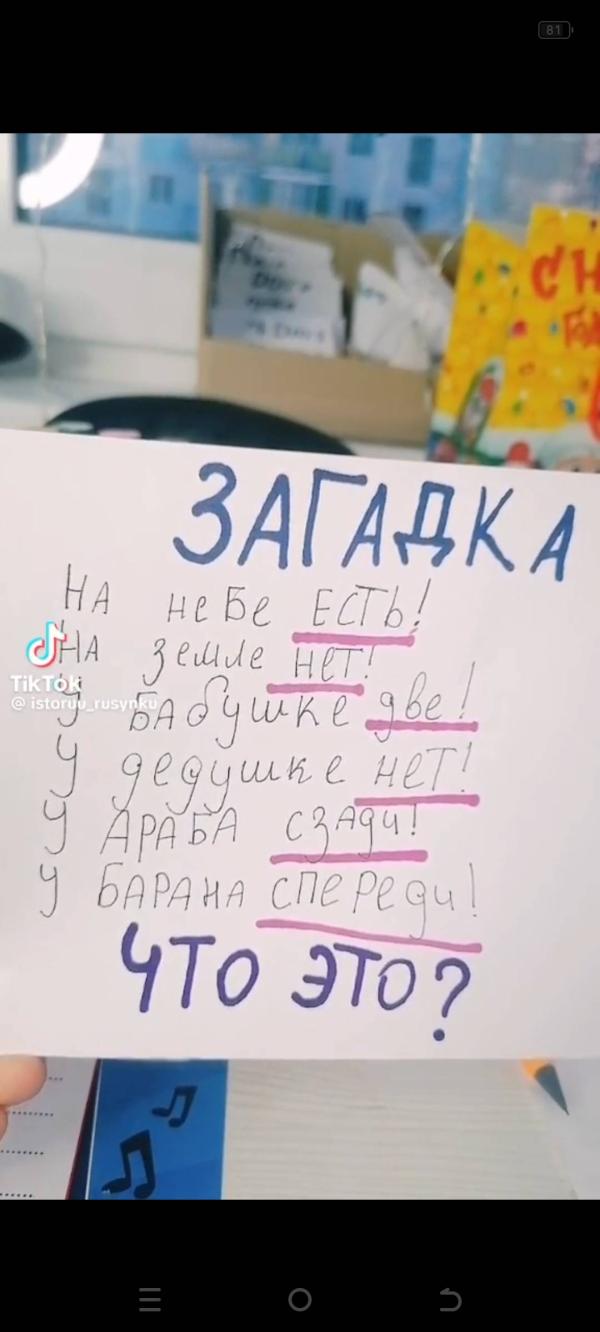 81
СН
ЗАГАДКА
НА НЕБЕ ЕСТЬ!
НА земле нет!
У БАБУШКЕ две!
У дедушке нет!
У АРАБА сзади!
У БАРАНА спереди!
ЧТО ЭТО?
TikTok
@ istoruu_rusynku